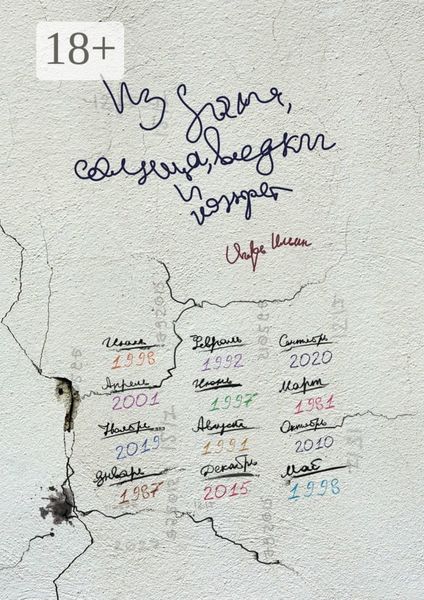 18+
Из
солнца, водки
и конфет
Игорь
Июль Февраль Сентябрь
1998 1992 2020
Апрель Июнь Март
2001 1997 1981
Ноябрь Август Октябрь
2019 1991 2010
январь Декабрь Май
1987 2015 1998